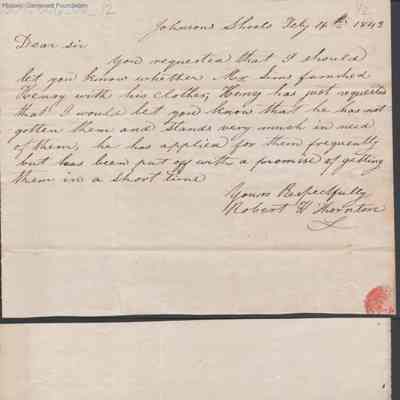 Historic Claremont Foundation
12
Johnsons Shoals Feby 14th 1843
Dear sir
you requested that I should
let you know whether Mr Sims furnished
Henry with his clothes, Henry has just requested
that I would let you know that he has not
gotten them and stands very much in need
of them, he has applied for them frequently
but has been put off with a promise of getting
them in a short time
Yours Respectfully
Robert H Thornton